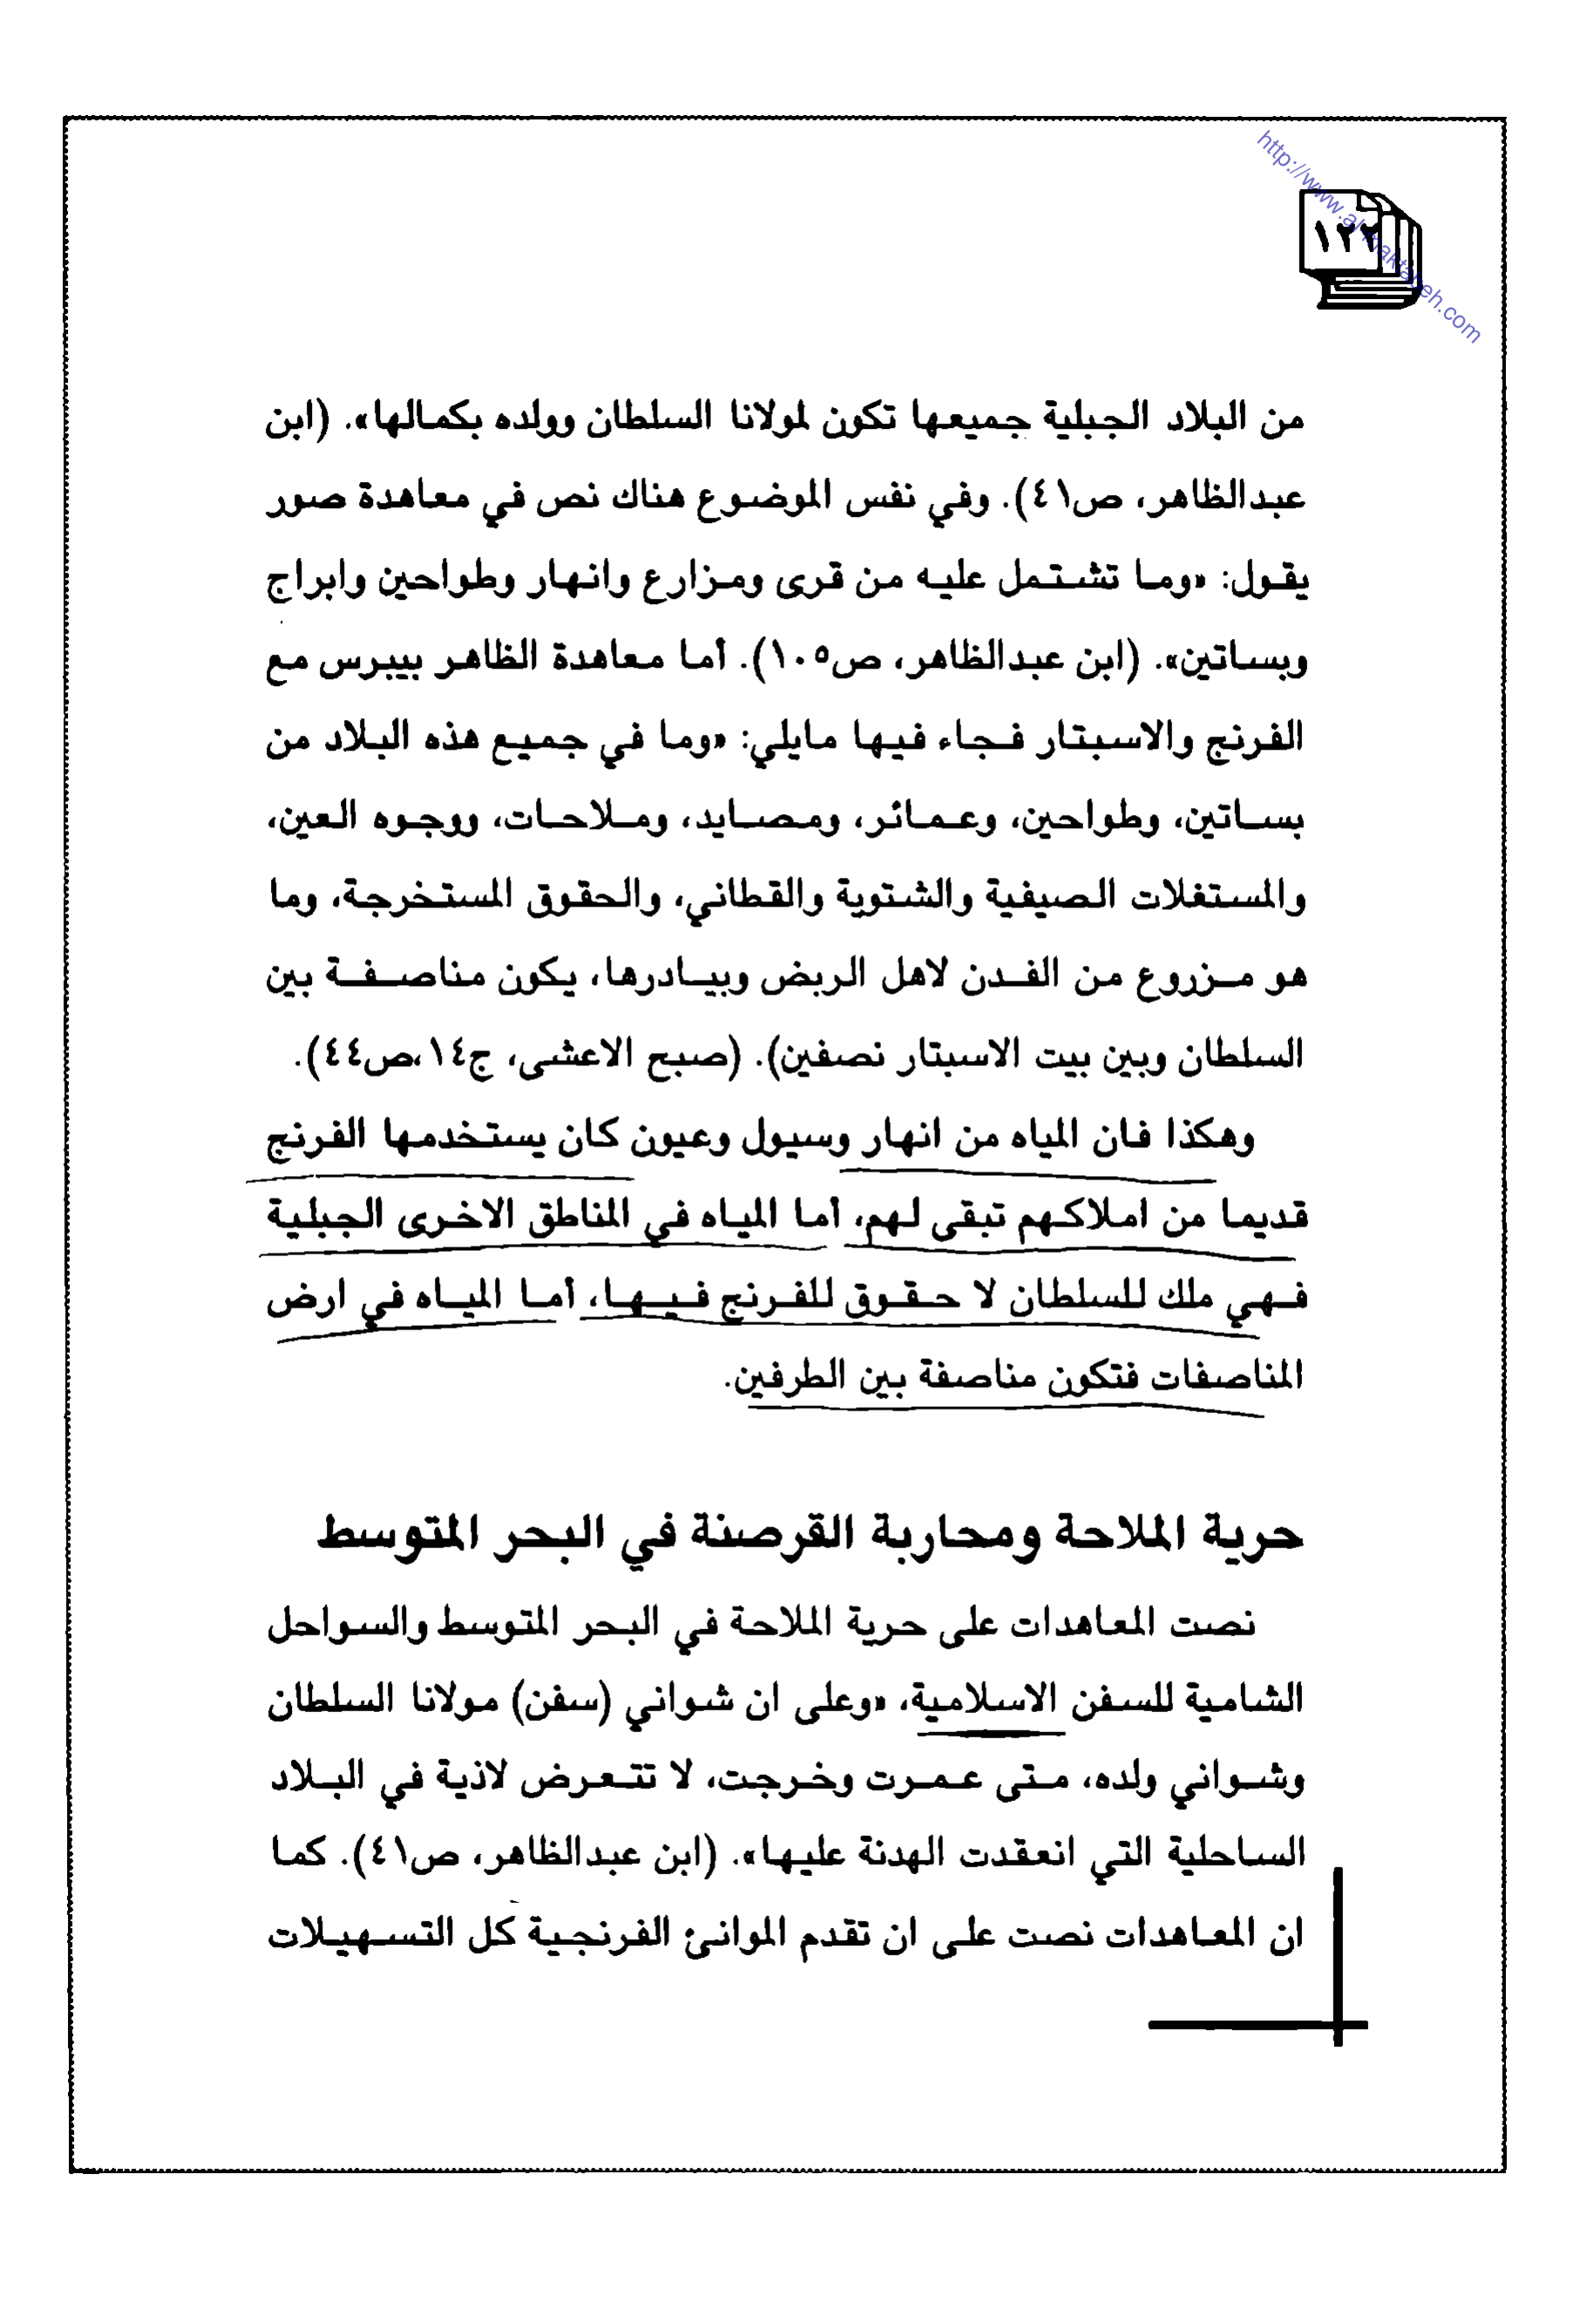 http://www.al-maktabeh.com
١٢٢
من البلاد الجبلية جميعها تكون لمولانا السلطان وولده بكمالها». (ابن
عبدالظاهر، ص٤١). وفي نفس الموضوع هناك نص في معاهدة صور
يقول: «وما تشتمل عليه من قرى ومزارع وانهار وطواحين وابراج
وبساتين». (ابن عبدالظاهر، ص١٠٥). أما معاهدة الظاهر بيبرس مع
الفرنج والاسبتار فجاء فيها مايلي: «وما في جميع هذه البلاد من
بساتين، وطواحين، وعمائر، ومصايد، وملاحات، ووجوه العين،
والمستغلات الصيفية والشتوية والقطاني، والحقوق المستخرجة، وما
هو مزروع من الفدن لاهل الربض وبيادرها، يكون مناصفة بين
السلطان وبين بيت الاسبتار نصفين). (صبح الاعشى، ج١٤،ص٤٤).
وهكذا فان المياه من انهار وسيول وعيون كان يستخدمها الفرنج
قديما من املاكهم تبقى لهم، أما المياه في المناطق الاخرى الجبلية
فهي ملك للسلطان لا حقوق للفرنج فيها، أما المياه في ارض
المناصفات فتكون مناصفة بين الطرفين.
حرية الملاحة ومحاربة القرصنة في البحر المتوسط
نصت المعاهدات على حرية الملاحة في البحر المتوسط والسواحل
الشامية للسفن الاسلامية، «وعلى ان شواني (سفن) مولانا السلطان
وشواني ولده، متى عمرت وخرجت، لا تتعرض لاذية في البلاد
الساحلية التي انعقدت الهدنة عليها». (ابن عبدالظاهر، ص٤١). كما
ان المعاهدات نصت على ان تقدم الموانئ الفرنجية كل التسهيلات